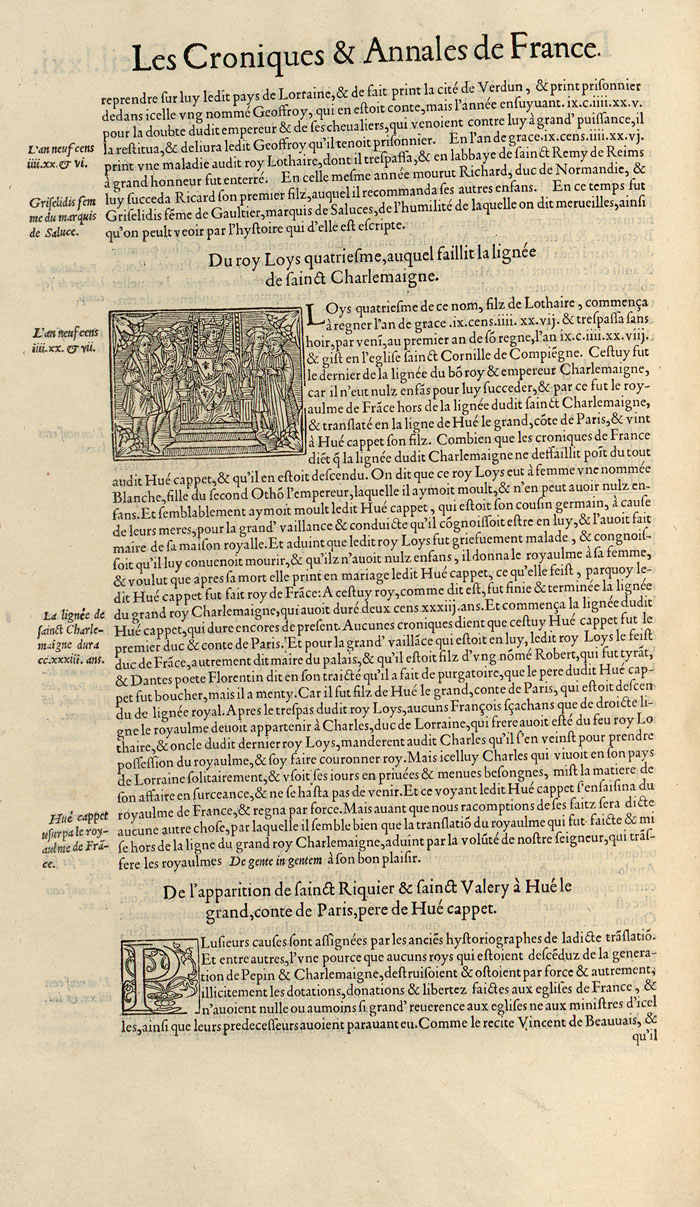 Les Croniques & Annales de France.
reprendre sur luy ledit pays de Lorraine,& de fait print la cité de Verdun , & print prisonnier
dedans icelle vng nommé Geoffroy, qui en estoit conte,mais l'année ensuyuant.ix.c.iiii.xx.v.
pour la doubte dudit empereur & de ses cheualiers,qui venoient contre luy à grand' puissance,il
la restitua,& deliura ledit Geoffroy qu'il tenoit prisonnier. En l'an de grace.ix.cens.iiii.xx.vj.
print vne maladie audit roy Lothaire,dont il trespassa,& en labbaye de sainct Remy de Reims
à grand honneur fut enterré. En celle mesme année mourut Richard, duc de Normandie, &
luy succeda Ricard son premier filz,auquel il recommanda ses autres enfans. En ce temps fut
Griselidis fẽme de Gaultier,marquis de Saluces,de l'humilité de laquelle on dit merueilles,ainsi
qu'on peult veoir par l'hystoire qui d'elle est escripte.
L'an neuf cens
iiii.xx. & vi.
Griselidis fem
me du marquis
de Saluce.
Du roy Loys quatriesme,auquel faillit la lignée
de sainct Charlemaigne.
L'an neuf cens
iiii.xx. & vii.
LOys quatriesme de ce nom, filz de Lothaire , commença
à regner l'an de grace .ix.cens.iiii. xx.vij. & trespassa sans
hoir,par veni,au premier an de sõ regne,l'an ix.c.iiii.xx.viij.
& gist en l'eglise sainct Cornille de Compiégne. Cestuy fut
le dernier de la lignée du bõ roy & empereur Charlemaigne,
car il n'eut nulz enfãs pour luy succeder,& par ce fut le roy-
aulme de Frãce hors de la lignée dudit sainct Charlemaigne,
& translaté en la ligne de Hué le grand,cõte de Paris,& vint
à Hué cappet son filz. Combien que les croniques de France
diẽt q̃ la lignée dudit Charlemaigne ne deffaillit poĩt du tout
audit Hué cappet,& qu'il en estoit descendu. On dit que ce roy Loys eut à femme vne nommée
Blanche,fille du second Othõ l'empereur,laquelle il aymoit moult,& n'en peut auoir nulz en-
fans.Et semblablement aymoit moult ledit Hué cappet , qui estoit son cousin germain, à cause
de leurs meres,pour la grand' vaillance & conduicte qu'il cõgnoissoit estre en luy,& l'auoit fait
maire de sa maison royalle.Et aduint que ledit roy Loys fut griefuement malade , & congnois-
soit qu'il luy conuenoit mourir,& qu'ilz n'auoit nulz enfans , il donna le royaulme à sa femme,
& voulut que apres sa mort elle print en mariage ledit Hué cappet, ce qu'elle feist , parquoy le-
dit Hué cappet fut fait roy de Frãce: A cestuy roy,comme dit est,fut finie & terminée la lignée
du grand roy Charlemaigne,qui auoit duré deux cens xxxiij.ans.Et commença la lignée dudit
Hué cappet,qui dure encores de present. Aucunes croniques dient que cestuy Hué cappet fut le
premier duc & conte de Paris. Et pour la grand' vaillãce qui estoit en luy, ledit roy Loys le feist
duc de Frãce,autrement dit maire du palais,& qu'il estoit filz d'vng nõmé Robert,qui fut tyrãt,
& Dantes poete Florentin dit en son traicté qu'il a fait de purgatoire,que le pere dudit Hué cap-
pet fut boucher,mais il a menty.Car il fut filz de Hué le grand,conte de Paris, qui estoit descen
du de lignée royal.Apres le trespas dudit roy Loys,aucuns François sçachans que de droicte li-
gne le royaulme deuoit appartenir à Charles,duc de Lorraine,qui frere auoit esté du feu roy Lo
thaire,& oncle dudit dernier roy Loys,manderent audit Charles qu'il s'en veinst pour prendre
possession du royaulme,& soy faire couronner roy.Mais icelluy Charles qui viuoit en son pays
de Lorraine solitairement,& vsoit ses iours en priuées & menues besongnes, mist la matiere de
son affaire en surceance,& ne se hasta pas de venir.Et ce voyant ledit Hué cappet s'ensaisina du
royaulme de France,& regna par force.Mais auant que nous racomptions de ses faitz sera dicte
aucune autre chose,par laquelle il semble bien que la translatiõ du royaulme qui fut faicte & mi
se hors de la ligne du grand roy Charlemaigne,aduint par la volũté de nostre seigneur,qui trãs-
fere les royaulmes De gente in gentem à son bon plaisir.
La lignée de
sainct Charle-
maigne dura
cc.xxxiii. ans.
Hué cappet
usurpa le roy-
aulme de Frã-
ce.
De l'apparition de sainct Riquier & sainct Valery à Hué le
grand,conte de Paris,pere de Hué cappet.
PLusieurs causes sont assignées par les anciẽs hystoriographes de ladicte trãslatiõ.
Et entre autres,l'vne pource que aucuns roys qui estoient descẽduz de la genera-
tion de Pepin & Charlemaigne,destruisoient & ostoient par force & autrement,
illicitement les dotations,donations & libertez faictes aux eglises de France , &
n'auoient nulle ou aumoins si grand' reuerence aux eglises ne aux ministres d'icel
les,ainsi que leurs predecesseurs auoient parauant eu.Comme le recite Vincent de Beauuais, &
qu'il